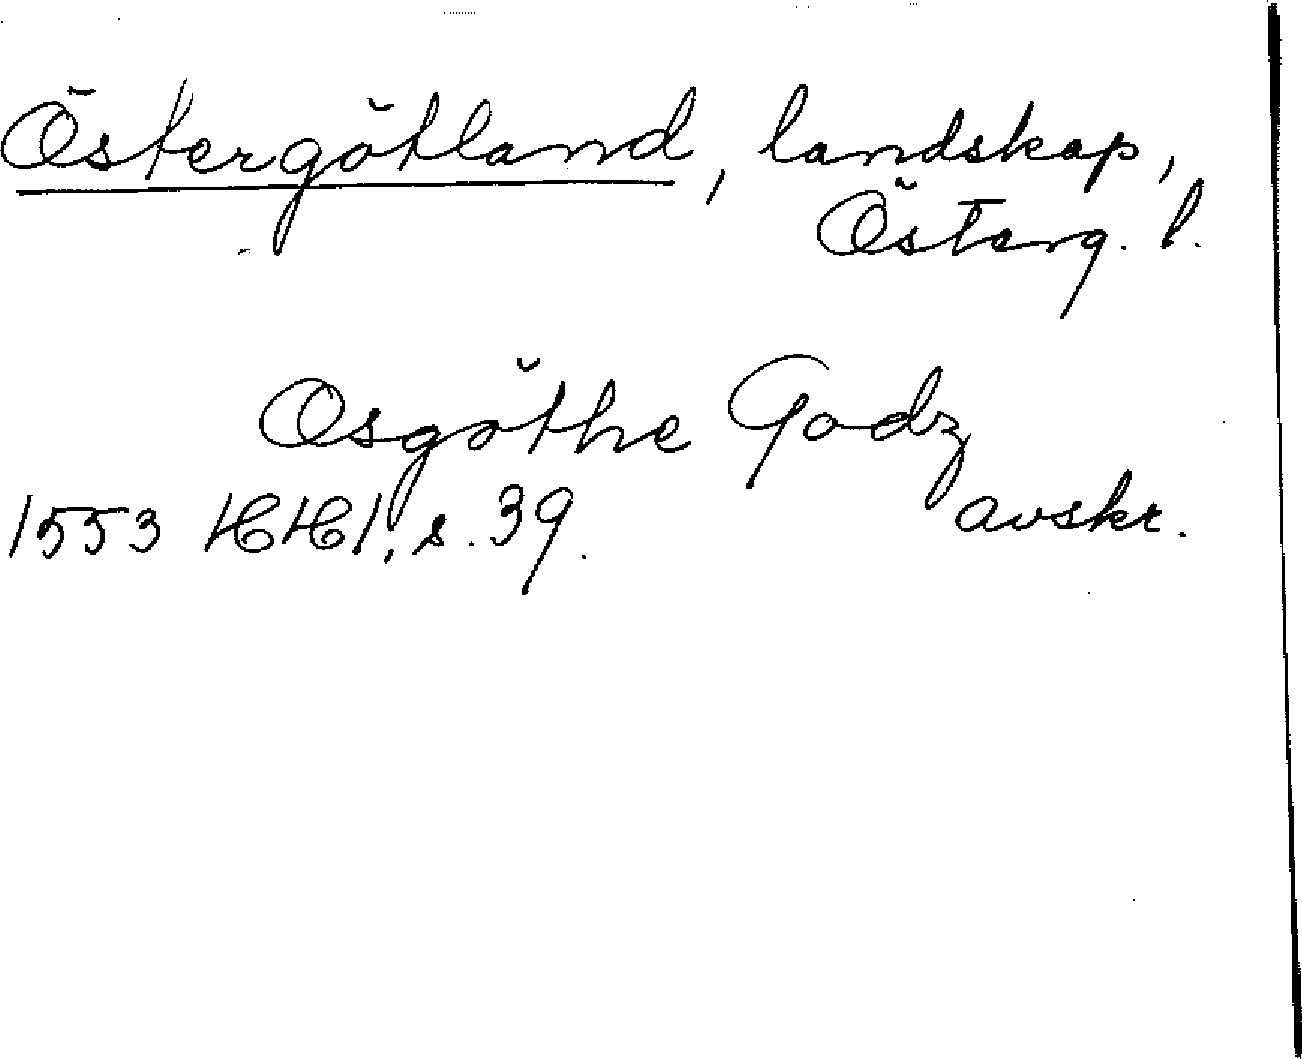 Östergötland, landskap,
Österg. l.
Osgöthe Godz
avskr.
1553 HH1, s. 39.